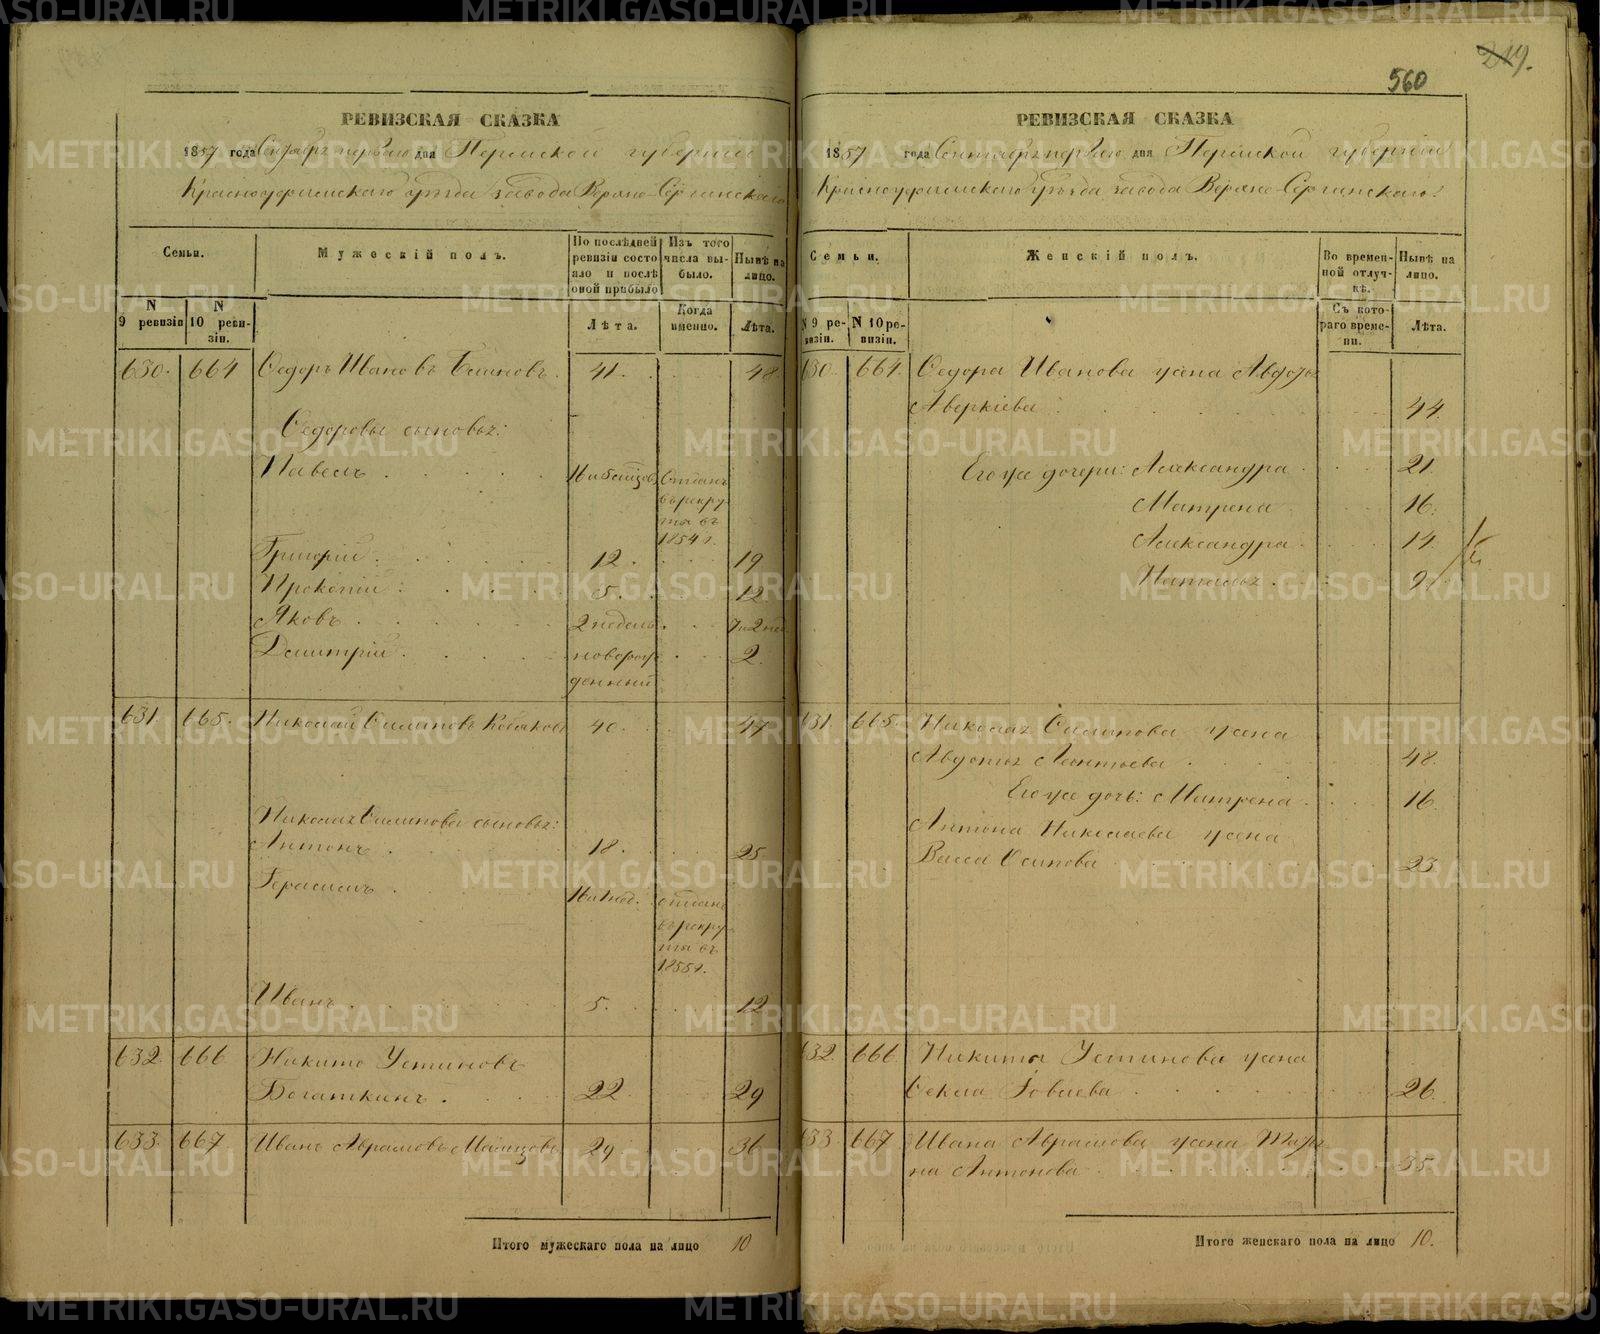 РЕВИЗСКАЯ СКАЗКА
1857 года Сентября первого дня Пермской губернии
Красноуфимскаго уѣзда завода Верхне-Сергинскаго
Семьи.
Мужескій полъ.
По послѣдней ревизіи состояло и послѣ оной прибыло
Изъ того числа выбыло.
Нынѣ на лицо.
N 9 ревизіи
N 10 ревизіи.
Лѣта.
Когда именно.
Лѣта.
630. 664 Ѳедоръ Ивановъ 41. 48
Ѳедоровы сыновья:
Павелъ Отданъ въ рекруты въ 1854 г.
Григорій 12. 19
Прокопій 5. 12
Яковъ 2 недель. 7 и 2 нед.
Дмитрій новорожденный 2.
631. 665. Николай Филиповъ 40. 47
Николая Филипова сыновья:
Антонъ 18. 25
Герасимъ отданъ въ рекруты въ 1855 г.
Иванъ 5. 12
632. 666 Никита Устиновъ
Богаткинъ 22 29
633. 667 Иванъ Аврамовъ 29. 36
Итого мужескаго пола на лицо 10
219.
560
РЕВИЗСКАЯ СКАЗКА
1857 года Сентября первого дня Пермской губерніи
Красноуфимскаго уѣзда завода Верхне-Сергинскаго
Семьи.
Женскій полъ.
Во временной отлучкѣ.
Нынѣ на лицо.
N 9 ревизіи.
N 10 ревизіи.
Съ котораго времени.
Лѣта.
630. 664. Ѳедора Иванова жена Авдотья
Аверкіева 44.
Его же дочери: Александра 21.
Матрена 16.
Александра 14.
Наталья 9.
631. 665. Николая Филипова жена
Авдотья Леонтьева 48.
Его же дочь: Матрена 16.
Антона Николаева жена
Васса Осипова 23.
632. 666 Никиты Устинова жена
Ѳекла 26.
633. 667. Ивана Аврамова жена
Антонова 35.
Итого женскаго пола на лицо 10.
METRIKI.GASO-URAL.RU